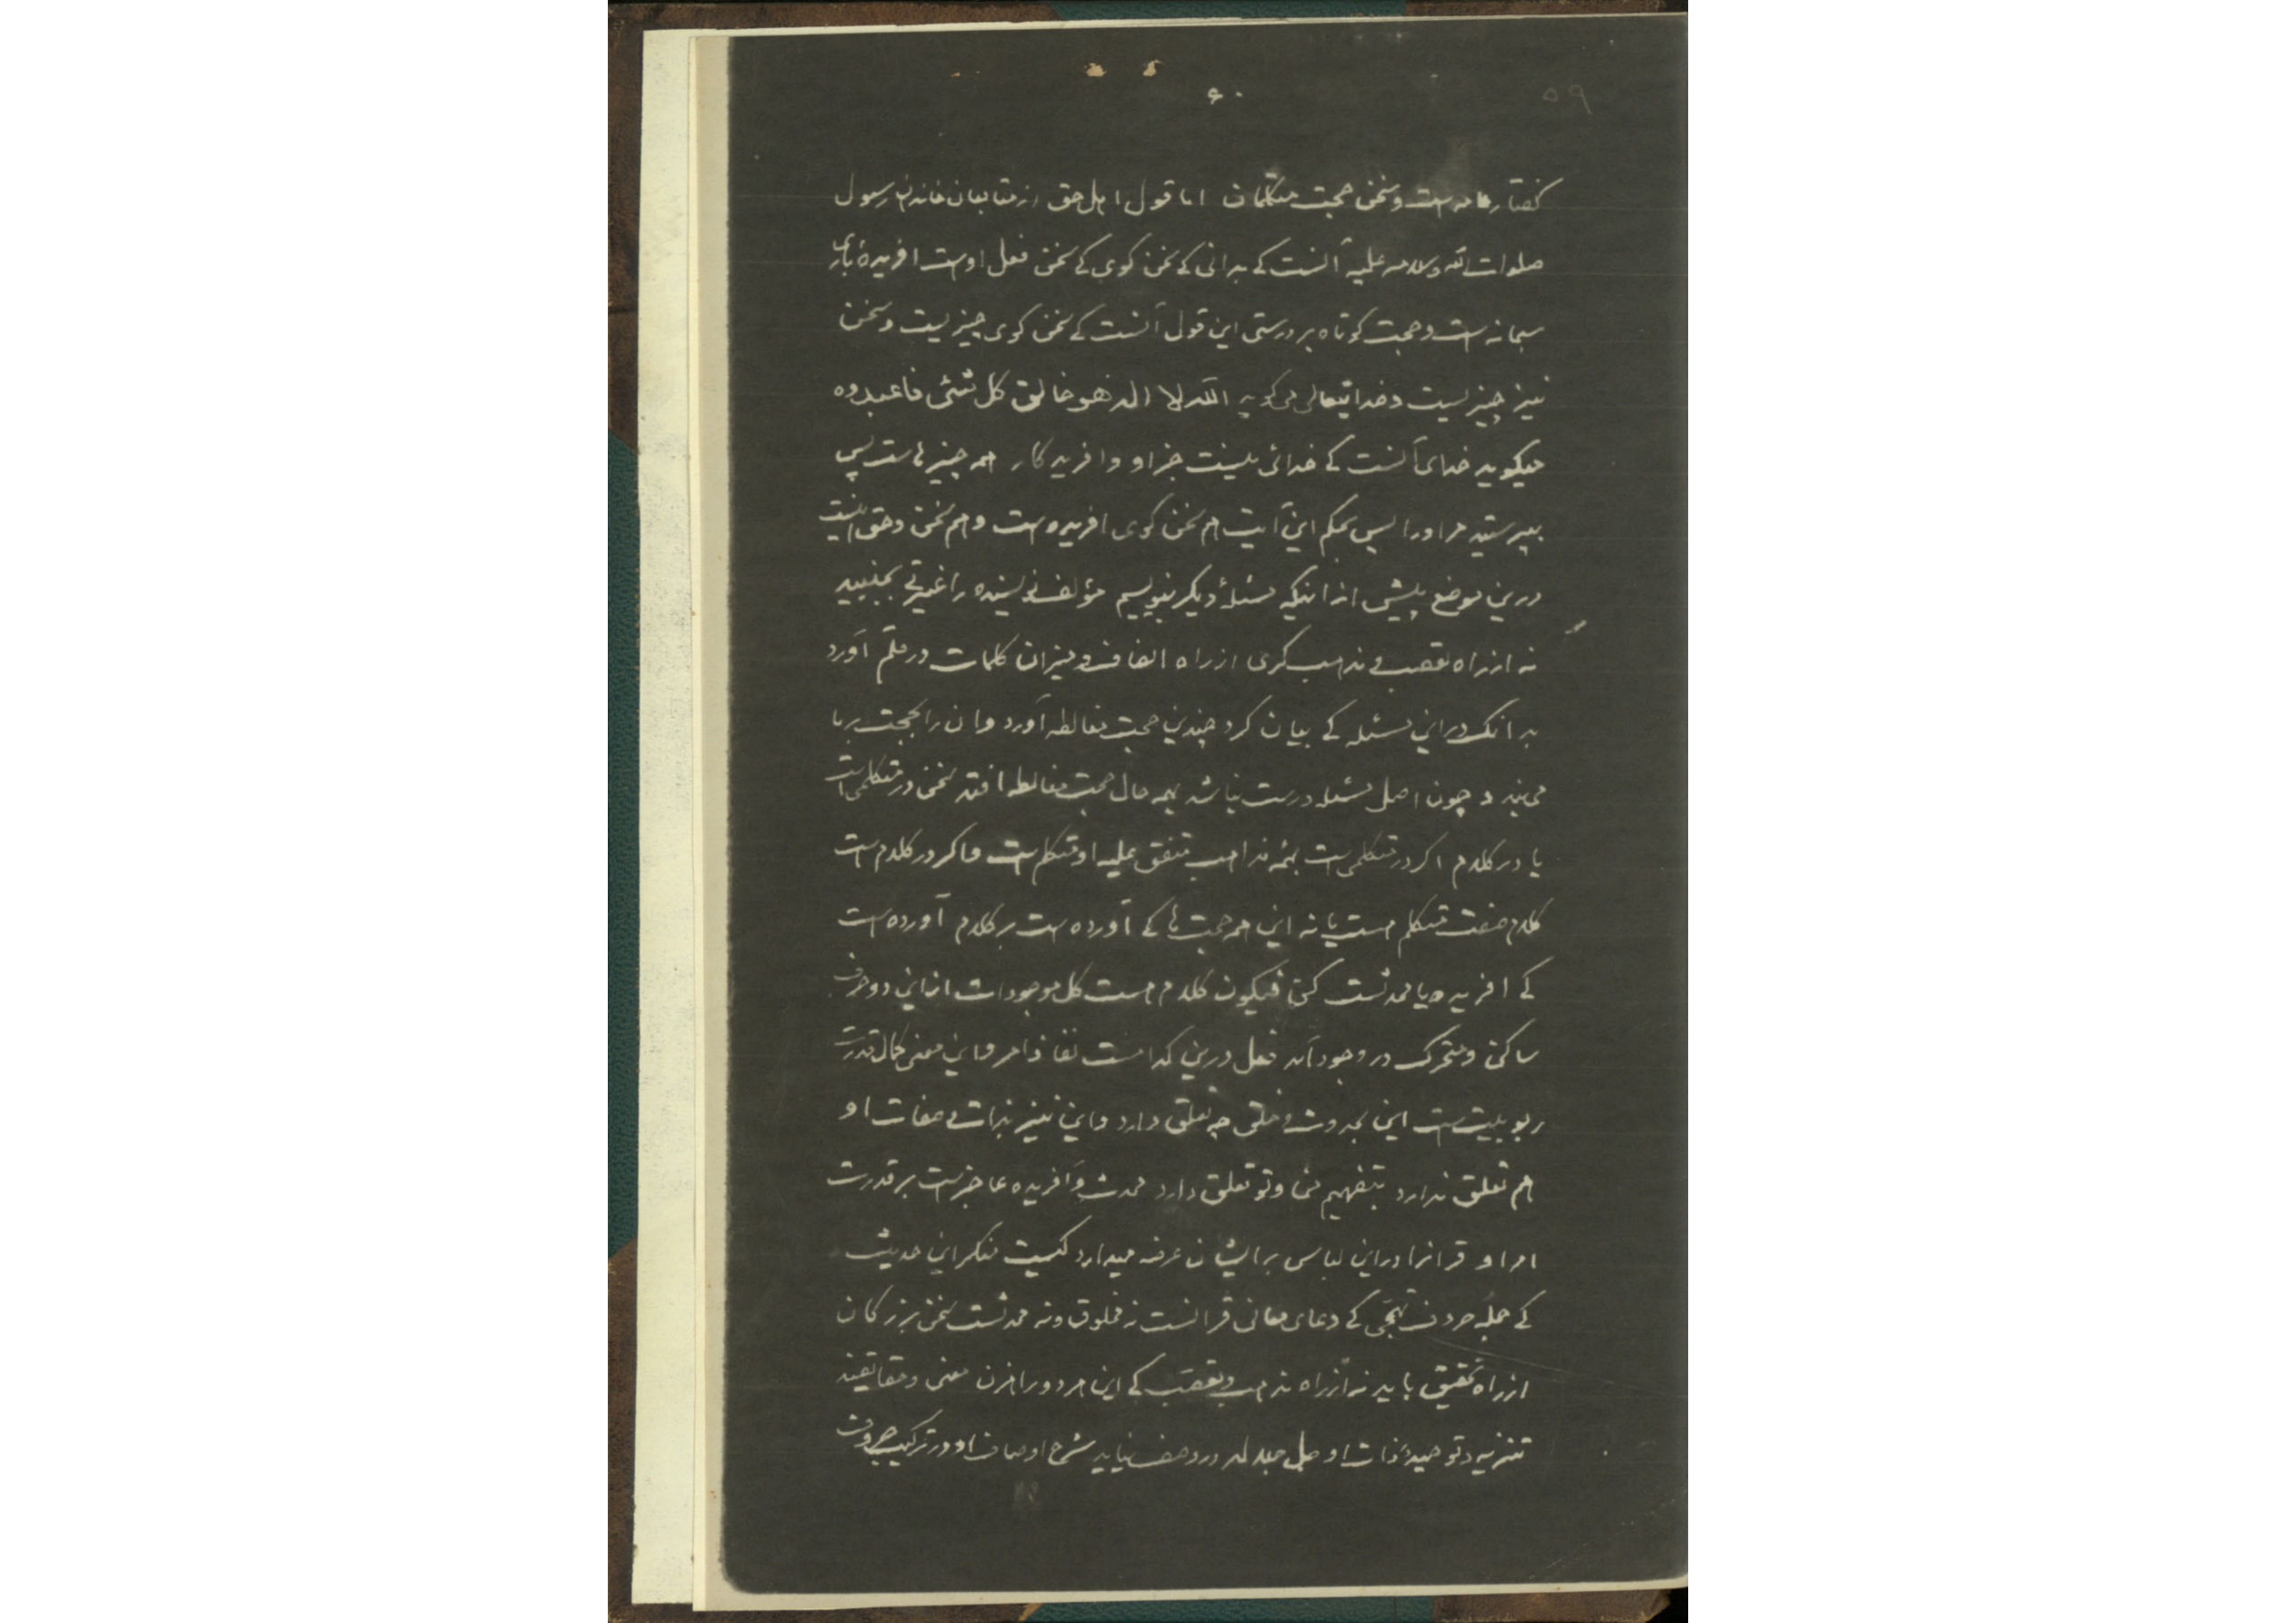 ۶۰
۵۹
گفتار عامه است و سخن حجت متکلمان اما قول اهل حق از متابعان خاندان رسول
صلوات الله وسلامه علیه آنست کے بدانی کے سخن کوی کے سخن فعل اوست افریدهٔ باری
سبحانه است و حجت کوتاه بر درستی این قول آنست کے سخن کوی چیزیست و سخن
نیز چیزیست و خدایتعالی می کوید الله لا اله هو خالق کل شئی فاعبدوه
میکوید خدای آنست کے خدائی نیست جز او وافریدکار همه چیزهاست پس
بپرستید مر او را پس بحکم این آیت هم سخن کوی افریده است و هم سخن و حق اینست
درین موضع پیش از انکه مسئلهٔ دیکر بنویسیم مؤلف نویسنده را غیرتے بجنبید
نه از راه تعصب و مذهب کری از راه انصاف و میزان کلمات در قلم آورد
بدانک در این مسئله کے بیان کرد چندین حجت مغالطه آورد و ان را بحجت بر ما
می نهد و چون اصل مسئله درست نباشد بهمه حال حجت مغالطه افتد سخن در متکلمی است
یا در کلام اکر در متکلمی است بهمه مذاهب متفق علیه او متکلم است و اکر در کلام است
کلام صفت متکلم هست یا نه این همه حجت ها کے آورده است بر کلام آورده است
کے افریده یا محدثست کن فیکون کلام هست کل موجودات از این دو حرف
ساکن و متحرک در وجود آمد فعل درین کدامست نفاذ امر و این معنی کمال قدرت
ربوبیت است این بحدوث و خلق چه تعلق دارد و این نیز بذات و صفات او
هم تعلق ندارد بتفهیم ما و تو تعلق دارد محدث و آفریده عاجزست بر قدرت
امر او قرانرا در این لباس بر ایشان عرضه میدارد کیست منکر این حدیث
کے جمله حروف تهجی کے دعای معانی قرانست نه مخلوق و نه محدثست سخن بزرکان
از راه تحقیق باید نه از راه مذهب و تعصب کے این هر دو راهزن معنی و حقایقند
تنزیه و توحید ذات او جل جلاله در وصف نیاید شرح اوصاف او در ترکیب حروف